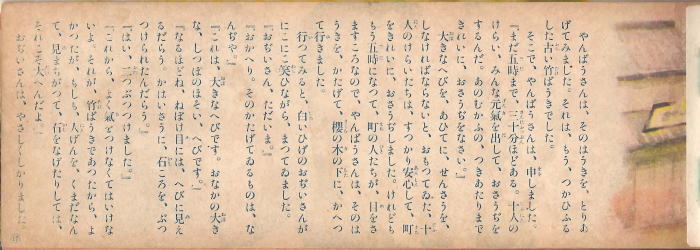 やんばうさんは、そのはうきを、とりあ
げてみました。それは、もう、つかひふる
した古い竹ばうきでした。
そこで、やんばうさんは、申しました。
『まだ五時まで、三十分ほどある。十人の
けらい、みんな元氣を出して、おさうぢを
するんだ。あのむかふの、つきあたりまで
きれいに、おさうぢをなさい。』
大きなへびを、あひてに、せんさうを、
しなければならないと、おもつてゐた、十
人のけらいたちは、すつかり安心して、町
をきれいに、おさうぢしました。けれども
もう五時になつて、町の人たちが、目をさ
ますころなので、やんばうさんは、そのは
うきを、かたげて、櫻の木の下に、かへつ
て行きました。
行つてみると、白いひげのおぢいさんが
にこにこ笑ひながら、まつてゐました。
『おぢいさん、ただいま。』
『おかへり。そのかたげてゐるものは、な
んぢや。』
『これは、大きなへびです。おなかの大き
な、しつぽのほそい、へびです。』
『なるほどね、ねぼけ目には、へびに見え
るだらう。かはいさうに、石ころを、ぶつ
つけられたんだらう。』
『はい、二つぶつつけました。』
『これから、よく氣をつけなくてはいけな
いよ。それが、竹ばうきであつたから、よ
かつたが、もしも、人げんを、くまだなん
て、見まちがつて、石をなげたりしては、
それこそ大へんだよ。』
おぢいさんは、やさしくしかりました